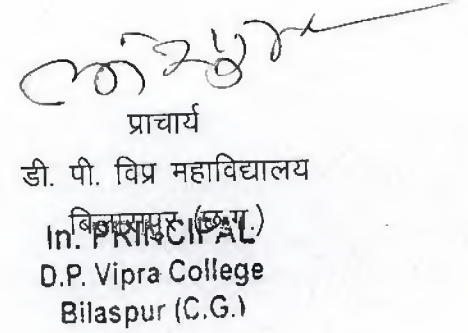 प्राचार्य
डी. पी. विप्र महाविद्यालय
बिलासपुर (छ.ग.)
In. PRINCIPAL
D.P. Vipra College
Bilaspur (C.G.)